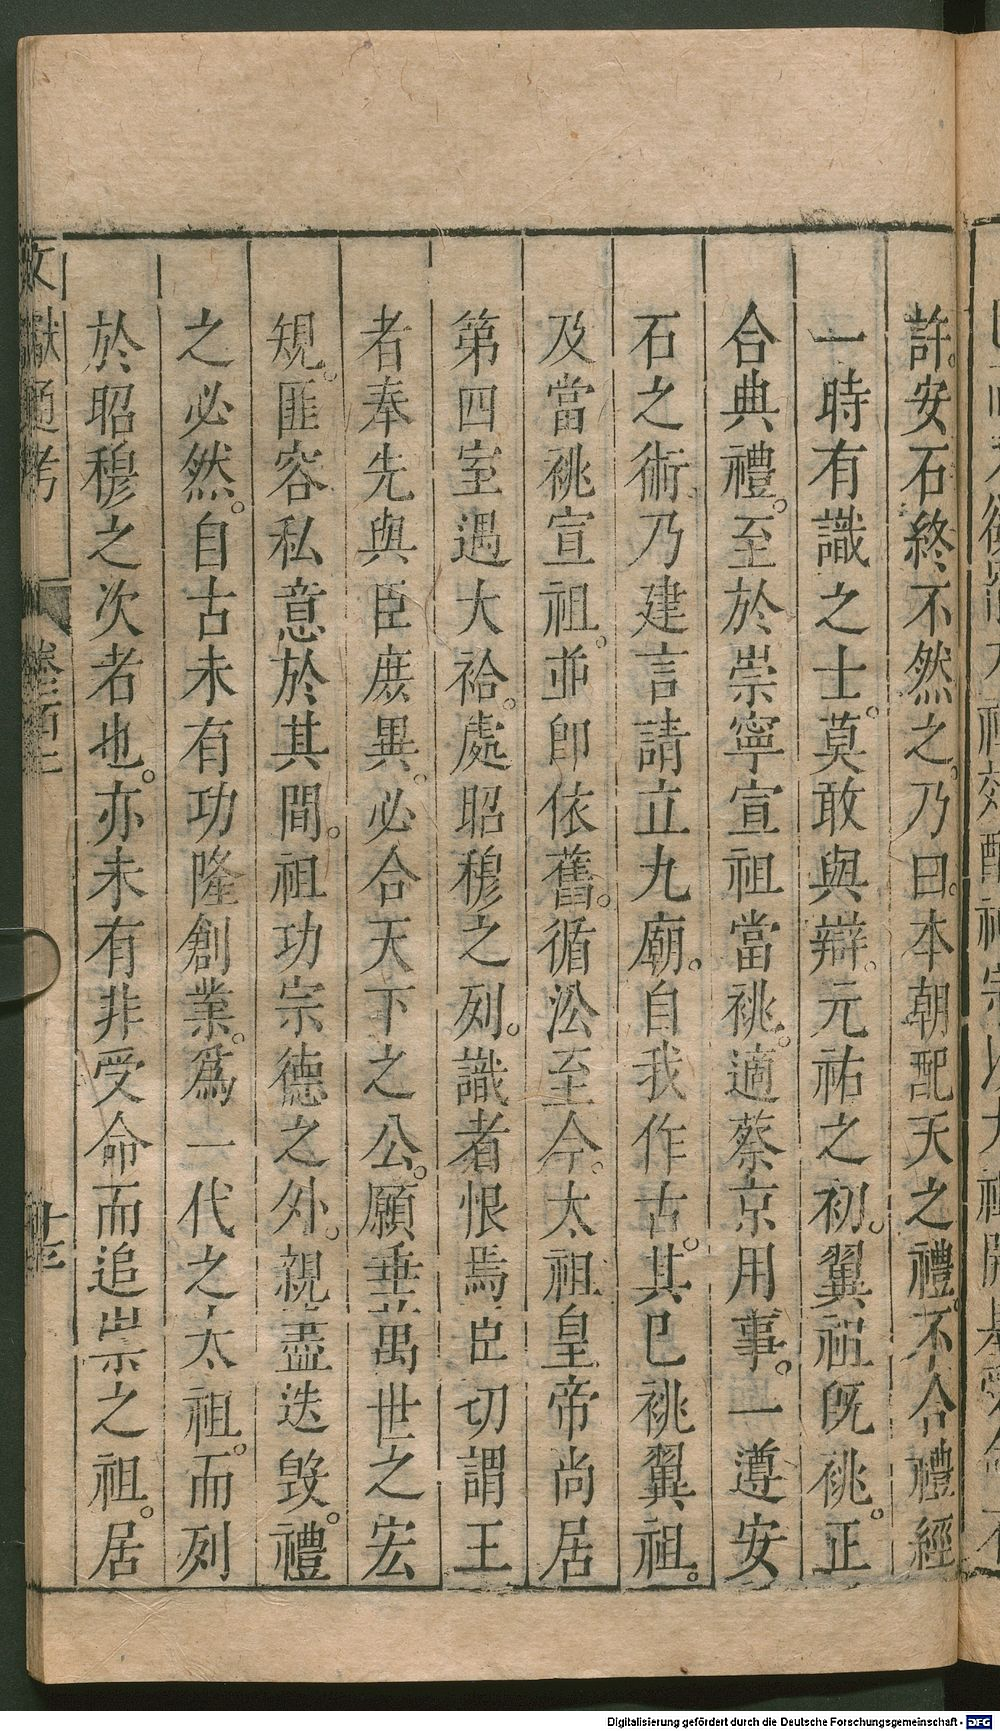 許。安石終不然之。乃曰。本朝配天之禮。不合禮經
一時有識之士。莫敢與辯。元祐之初。翼祖旣祧。正
合典禮。至於崇寧宣祖當祧。適蔡京用事。一遵安
石之術。乃建言請立九廟。自我作古。其已祧翼祖。
及當祧宣祖。並卽依舊。循㳂至今。太祖皇帝尚居
第四室遇大祫。處昭穆之列。識者恨焉臣切謂王
者奉先與臣庶異。必合天下之公。願垂萬世之宏
規。匪容私意於其間。祖功宗德之外。親盡迭毀。禮
之必然。自古未有功隆創業。爲一代之太祖。而列
於昭穆之次者也。亦未有非受命而追崇之祖。居
文獻通考
Digitalisierung gefördert durch die Deutsche Forschungsgemeinschaft - DFG